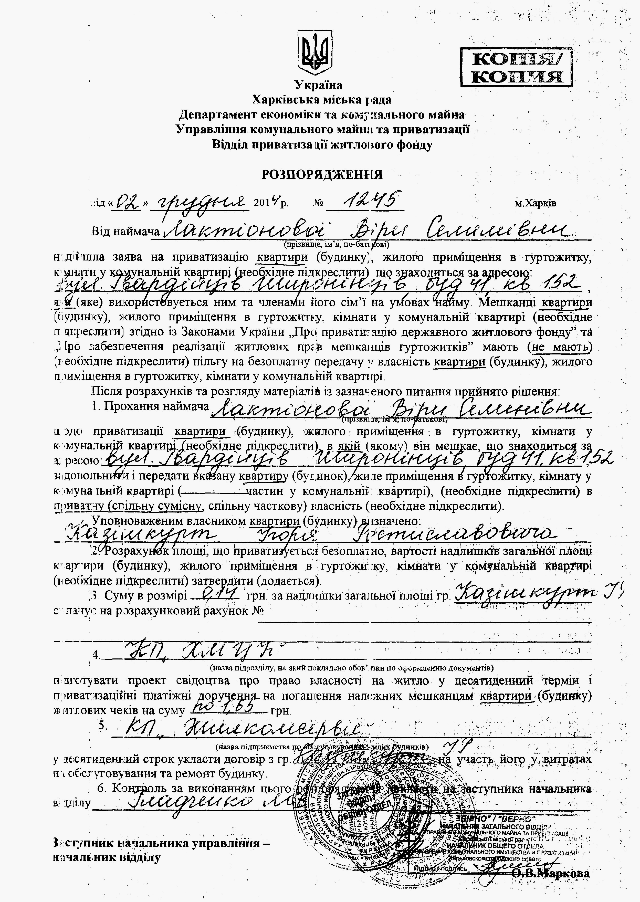 КОПІЯ/
КОПИЯ
Україна
Харківська міська рада
Департамент економіки та комунального майна
Управління комунального майна та приватизації
Відділ приватизації житлового фонду
РОЗПОРЯДЖЕННЯ
від «02» грудня 2014 р. № 1245 м.Харків
Від наймача Лактіонової Віри Семенівни
(прізвище, ім'я, по-батькові)
надійшла заява на приватизацію квартири (будинку), жилого приміщення в гуртожитку,
кімнати у комунальній квартирі (необхідне підкреслити) що знаходиться за адресою:
вул. Гвардійців Широнінців буд 41 кв 152,
яка (яке) використовується ним та членами його сім'ї на умовах найму. Мешканці квартири
(будинку), жилого приміщення в гуртожитку, кімнати у комунальній квартирі (необхідне
підкреслити) згідно із Законами України „Про приватизацію державного житлового фонду" та
„Про забезпечення реалізації житлових прав мешканців гуртожитків" мають (не мають)
(необхідне підкреслити) пільгу на безоплатну передачу у власність квартири (будинку), жилого
приміщення в гуртожитку, кімнати у комунальній квартирі.
Після розрахунків та розгляду матеріалів із зазначеного питання прийнято рішення:
1. Прохання наймача Лактіонової Віри Семенівни
(прізвище, ім'я, по-батькові)
щодо приватизації квартири (будинку), жилого приміщення в гуртожитку, кімнати у
комунальній квартирі (необхідне підкреслити), в якій (якому) він мешкає, що знаходиться за
адресою вул. Гвардійців Широнінців, буд 41, кв 152
задовольнити і передати вказану квартиру (будинок), жиле приміщення в гуртожитку, кімнату у
комунальній квартирі ( частин у комунальній квартирі), (необхідне підкреслити) в
приватну (спільну сумісну, спільну часткову) власність (необхідне підкреслити).
Уповноваженим власником квартири (будинку) визначено:
Казімкурт Ігоря Ростиславовича
2. Розрахунок площі, що приватизується безоплатно, вартості надлишків загальної площі
квартири (будинку), жилого приміщення в гуртожитку, кімнати у комунальній квартирі
(необхідне підкреслити) затвердити (додається).
3. Суму в розмірі грн. за надлишки загальної площі гр. Казімкурт
сплачує на розрахунковий рахунок №
4. КП „ХМЦК"
(назва підрозділу, на який покладено обов'язки по оформленню документів)
підготувати проект свідоцтва про право власності на житло у десятиденний термін і
приватизаційні платіжні доручення на погашення належних мешканцям квартири (будинку)
житлових чеків на суму по 1,65 грн.
5. КП „Жилкомсервіс"
(назва підприємства по обслуговуванню жилих будинків)
у десятиденний строк укласти договір з гр. на участь його у витратах
на обслуговування та ремонт будинку.
6. Контроль за виконанням цього розпорядження покласти на заступника начальника
відділу
Заступник начальника управління –
начальник відділу
"ВІРНО" / "ВЕРНО"
НАЧАЛЬНИК ЗАГАЛЬНОГО ВІДДІЛУ
НАЧАЛЬНИК ОБЩЕГО ОТДЕЛА
О.В.Маркова